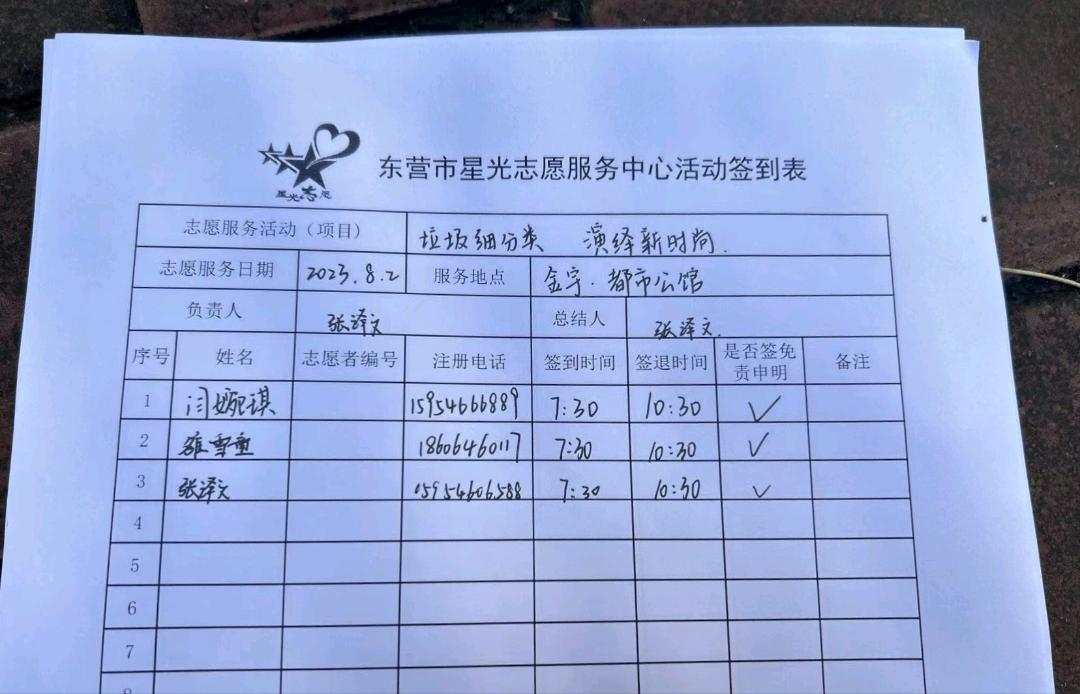 星光志愿
东营市星光志愿服务中心活动签到表
志愿服务活动（项目） 垃圾细分类 演绎新时尚.
志愿服务日期 2023.8.2 服务地点 金宇·都市公馆
负责人 张泽文 总结人 张泽文.
序号 姓名 志愿者编号 注册电话 签到时间 签退时间 是否签免责申明 备注
1 闫婉琪 15954666889 7:30 10:30 ✓
2 雪重 18606460117 7:30 10:30 ✓
3 张泽文 15954606588 7:30 10:30 ✓
4
5
6
7